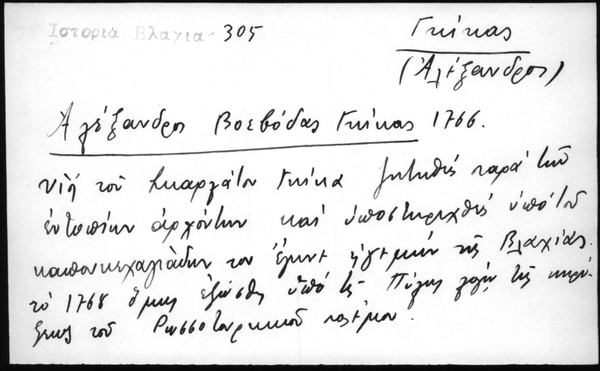 Ιστορία Βλαχια- 305
Γκίκας
(Ἀλέξανδρος)
Ἀλέξανδρος Βοεβόδας Γκίκας 1766.
υἱὸς τοῦ Σκαρλάτου Γκίκα ζητηθεὶς παρὰ τῶν
ἐντοπίων ἀρχόντων καὶ ὑποστηριχθεὶς ὑπὸ τοῦ
καπουκεχαγιάδων του ἔγινε ἡγεμὼν τῆς Βλαχίας.
τὸ 1768 ὅμως ἐξώσθη ὑπὸ τῆς Πύλης λόγῳ τῆς κηρύ-
ξεως τοῦ Ρωσσοτουρκικοῦ πολέμου.